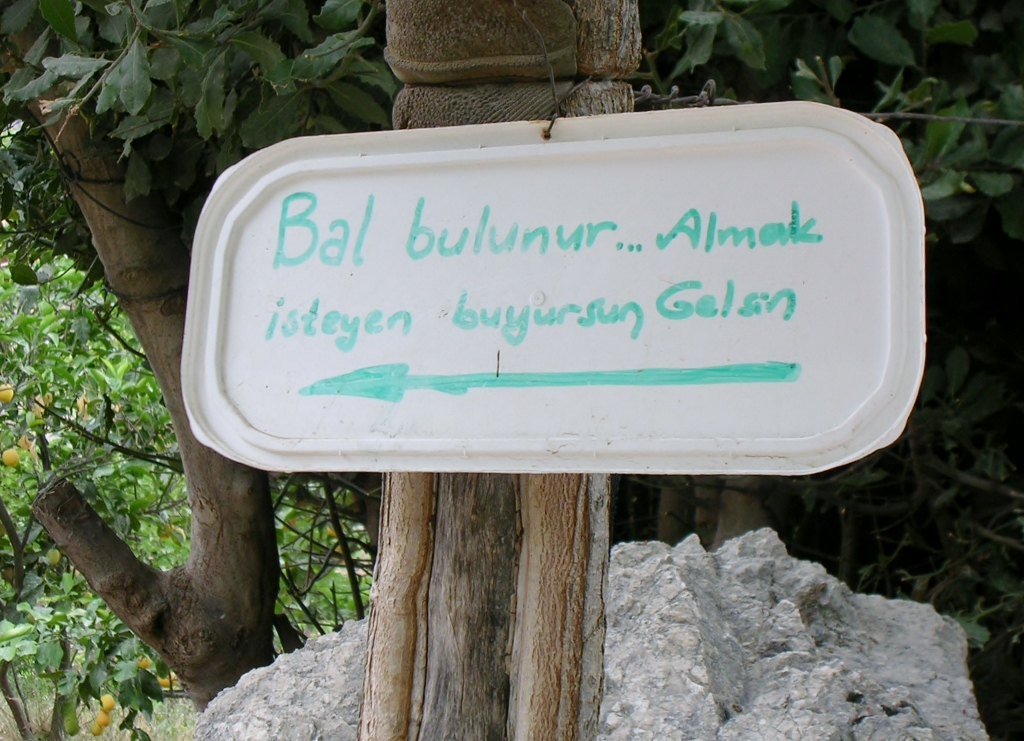 Bal bulunur... Almak
isteyen buyursun Gelsin